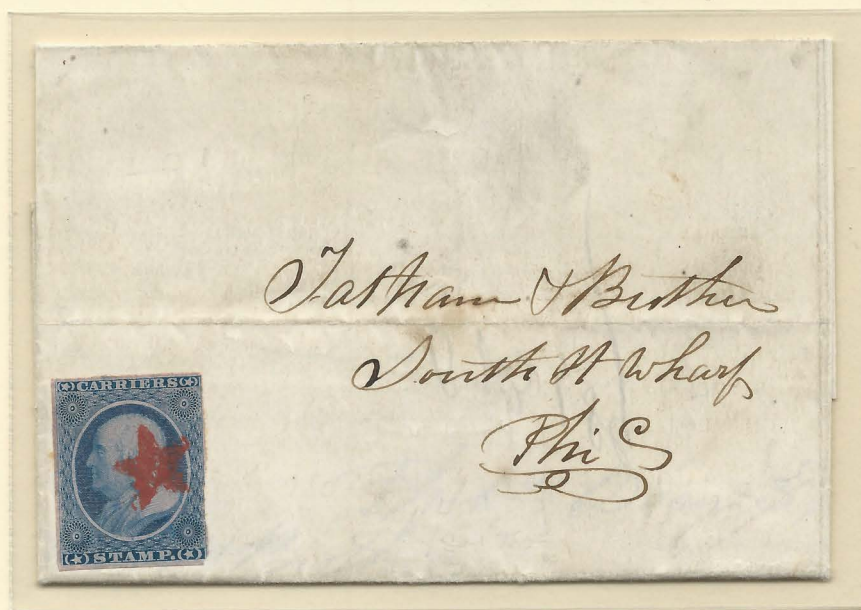 Tatham & Brother
South St Wharf
Phi
CARRIERS
STAMP.